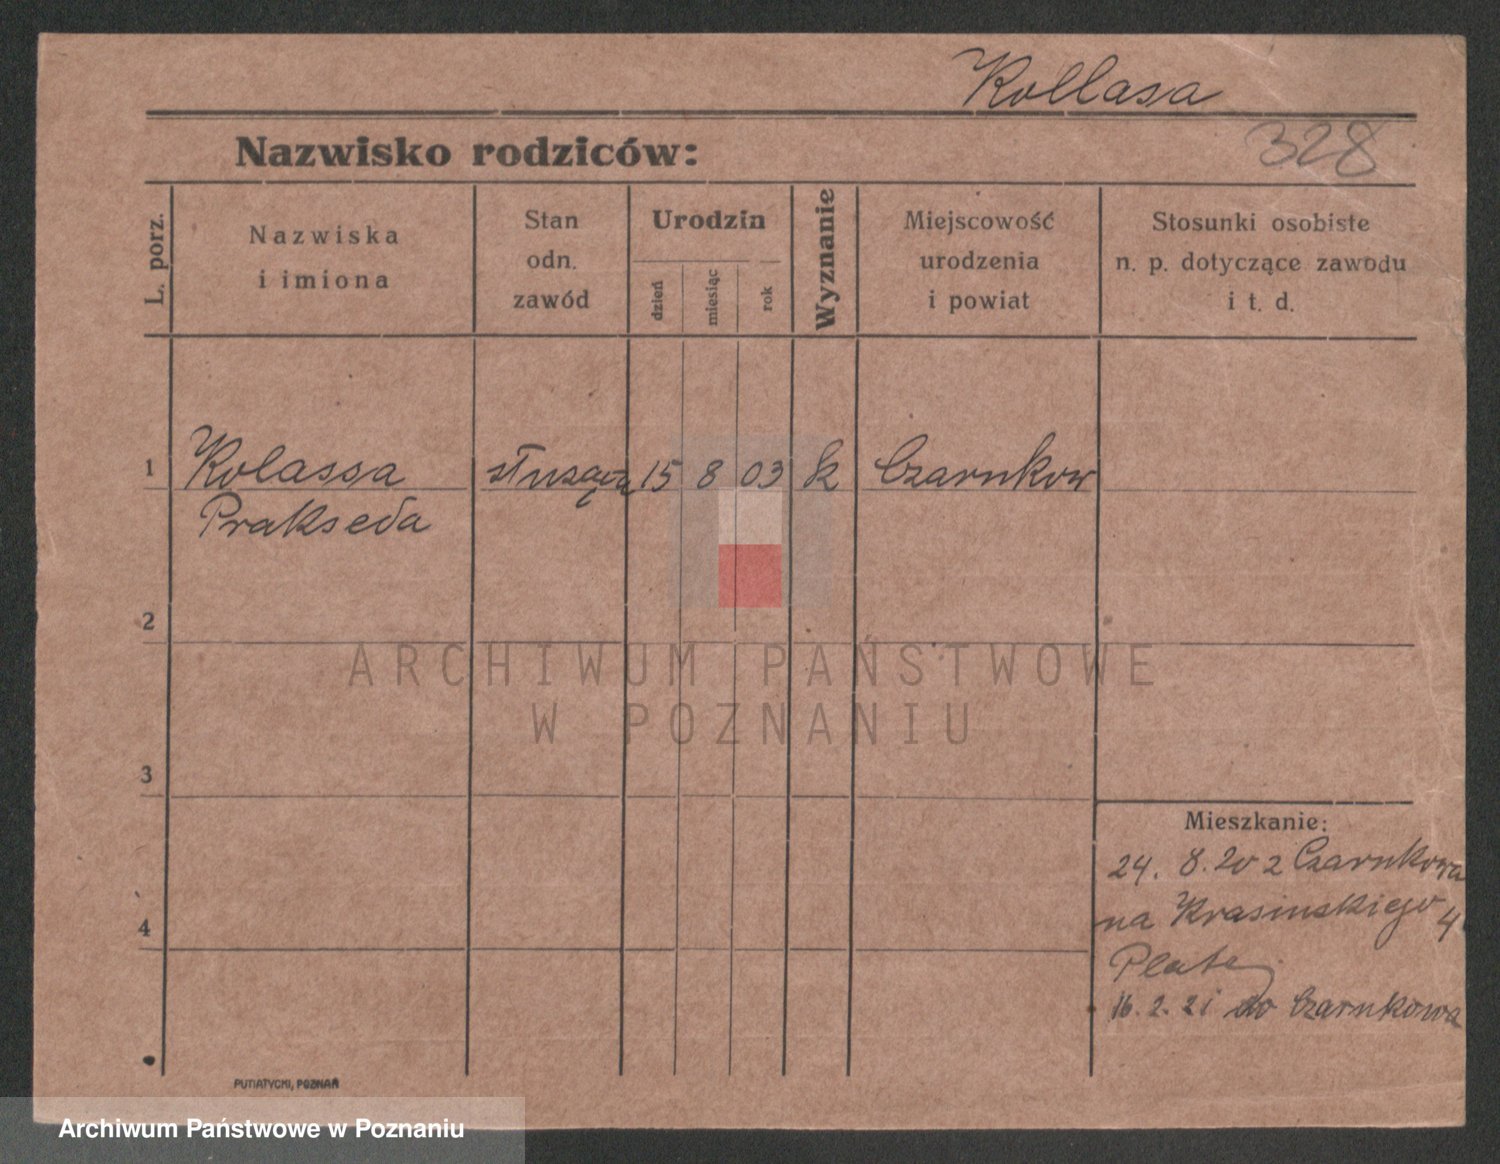 Kollasa
328
Nazwisko rodziców:
L. porz.
Nazwiska
i imiona
Stan
odn.
zawód
Urodzin
dzień
miesiąc
rok
Wyznanie
Miejscowość
urodzenia
i powiat
Stosunki osobiste
n. p. dotyczące zawodu
i t. d.
1 Kolassa służąca 15 8 03 k Czarnkow
Prakseda
2
3
4
Mieszkanie:
24. 8. 20 z Czarnkowa
na Krasinskiego 4
16. 2. 21 do Czarnkowa
PUTIATYCKI, POZNAŃ
ARCHIWUM PAŃSTWOWE
W POZNANIU
Archiwum Państwowe w Poznaniu